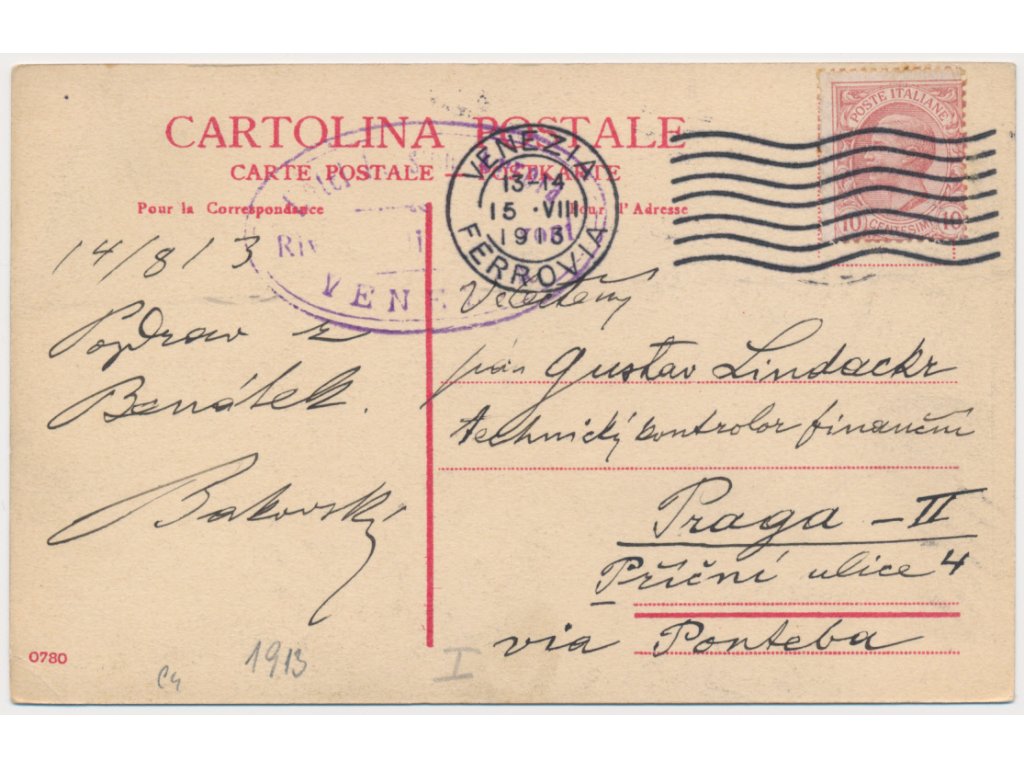 CARTOLINA POSTALE
CARTE POSTALE — POSTKARTE
Pour la Correspondance
Pour l'Adresse
POSTE ITALIANE
10 CENTESIMI 10
VENEZIA
13-14
15 · VIII
1913
FERROVIA
Riv
VENE
14/8 13
Pozdrav z
Benátek.
Bakovský
Velectěný
pán Gustav Lindackr
technický kontrolor finanční
Praga – II
Příční ulice 4
via Ponteba
0780
1913
I